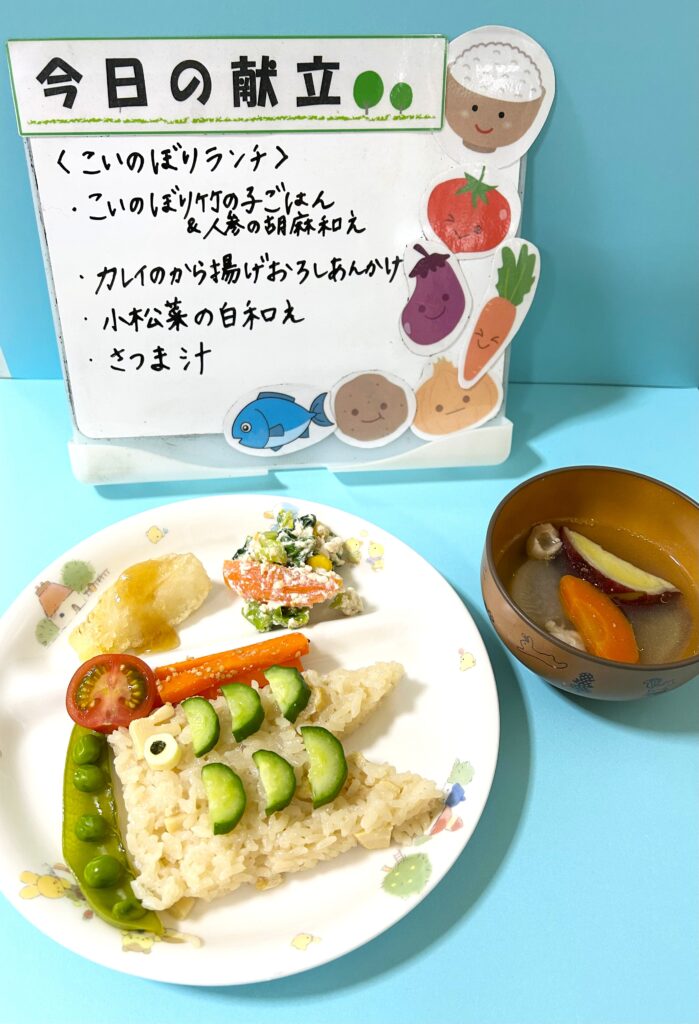 今日の献立
〈こいのぼりランチ〉
・こいのぼり竹の子ごはん
&人参の胡麻和え
・カレイのから揚げおろしあんかけ
・小松菜の白和え
・さつま汁